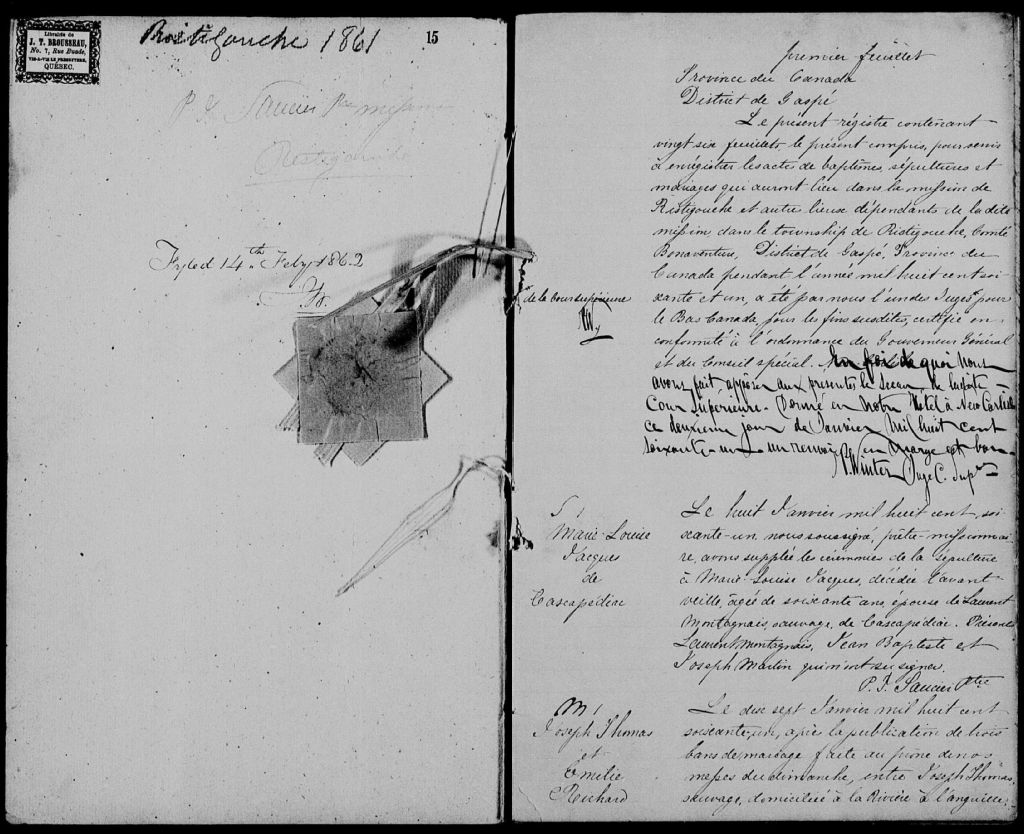 Librairie de
J. T. BROUSSEAU,
No. 7, Rue Buade,
VIS-A-VIS LE PRESBYTERE,
QUÉBEC.
Ristigouche 1861
15
P. J. Saucier Ptre miss
Ristigouche
Fyled 14th Feby 1862
premier feuillet
Province du Canada
District de Gaspé
Le présent régistre contenant
vingt six feuillets le présent compris, pour servir
à enrégistrer les actes de baptêmes, sépultures et
mariages qui auront lieu dans la mission de
Ristigouche et autre lieux dépendants de la dite
mission, dans le township de Ristigouche, Comté
Bonaventure, District de Gaspé, Province du
Canada pendant l'année mil huit cent soi-
xante et un, a été par nous l'un des Juges pour
de la cour supérieure
le Bas Canada, pour les fins susdites, certifié en
conformité à l'ordonnance du Gouverneur Général
et du Conseil spécial. En foi de quoi nous
avons fait apposer aux presentes le Sceau de la dite
Cour Supérieure. Donné en notre Hotel à New Carlisle
ce deuxieme jour de Janvier mil huit cent
soixante-un - un renvoi en marge est bon
Winter Juge C. Supre
S 1
Marie-Louise
Jacques
de
Cascapédiac
Le huit Janvier mil huit cent, soi-
xante-un, nous soussigné, prêtre-missionnai-
re, avons supplée les cérémonies de la sépulture
à Marie-Louise Jacques, décédée l'avant
veille, âgée de soixante ans, épouse de Laurent
Montagnais, sauvage, de Cascapédiac. Présents
Laurent Montagnais, Jean Baptiste et
Joseph Martin qui n'ont su signer.
P. J. Saucier Ptre
M 1
Joseph Thomas
et
Emilie
Richard
Le dix sept Janvier mil huit cent
soixante-un, après la publication de trois
bans de mariage faite au prône de nos
messes du dimanche, entre Joseph Thomas,
sauvage, domicilié à la Rivière à l'anguille,